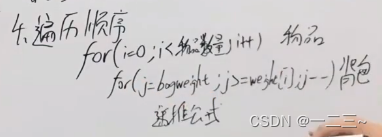 4.遍历顺序
for(i=0;i<物品数量;i++) 物品
for(j=bagweight;j>=weight[i];j--) 背包
递推公式
CSDN @一二三~